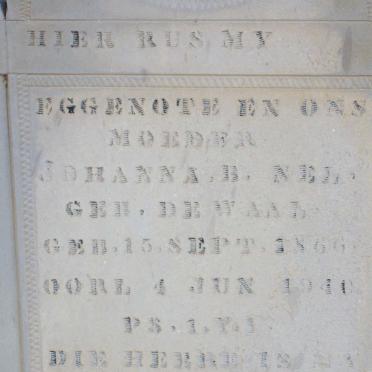 HIER RUS MY
EGGENOTE EN ONS
MOEDER
JOHANNA.B. NEL.
GEB. DE WAAL
GEB. 15. SEPT. 1866.
OORL 4 JUN 1940
PS. 1. V. 1
DIE HEERE IS MY